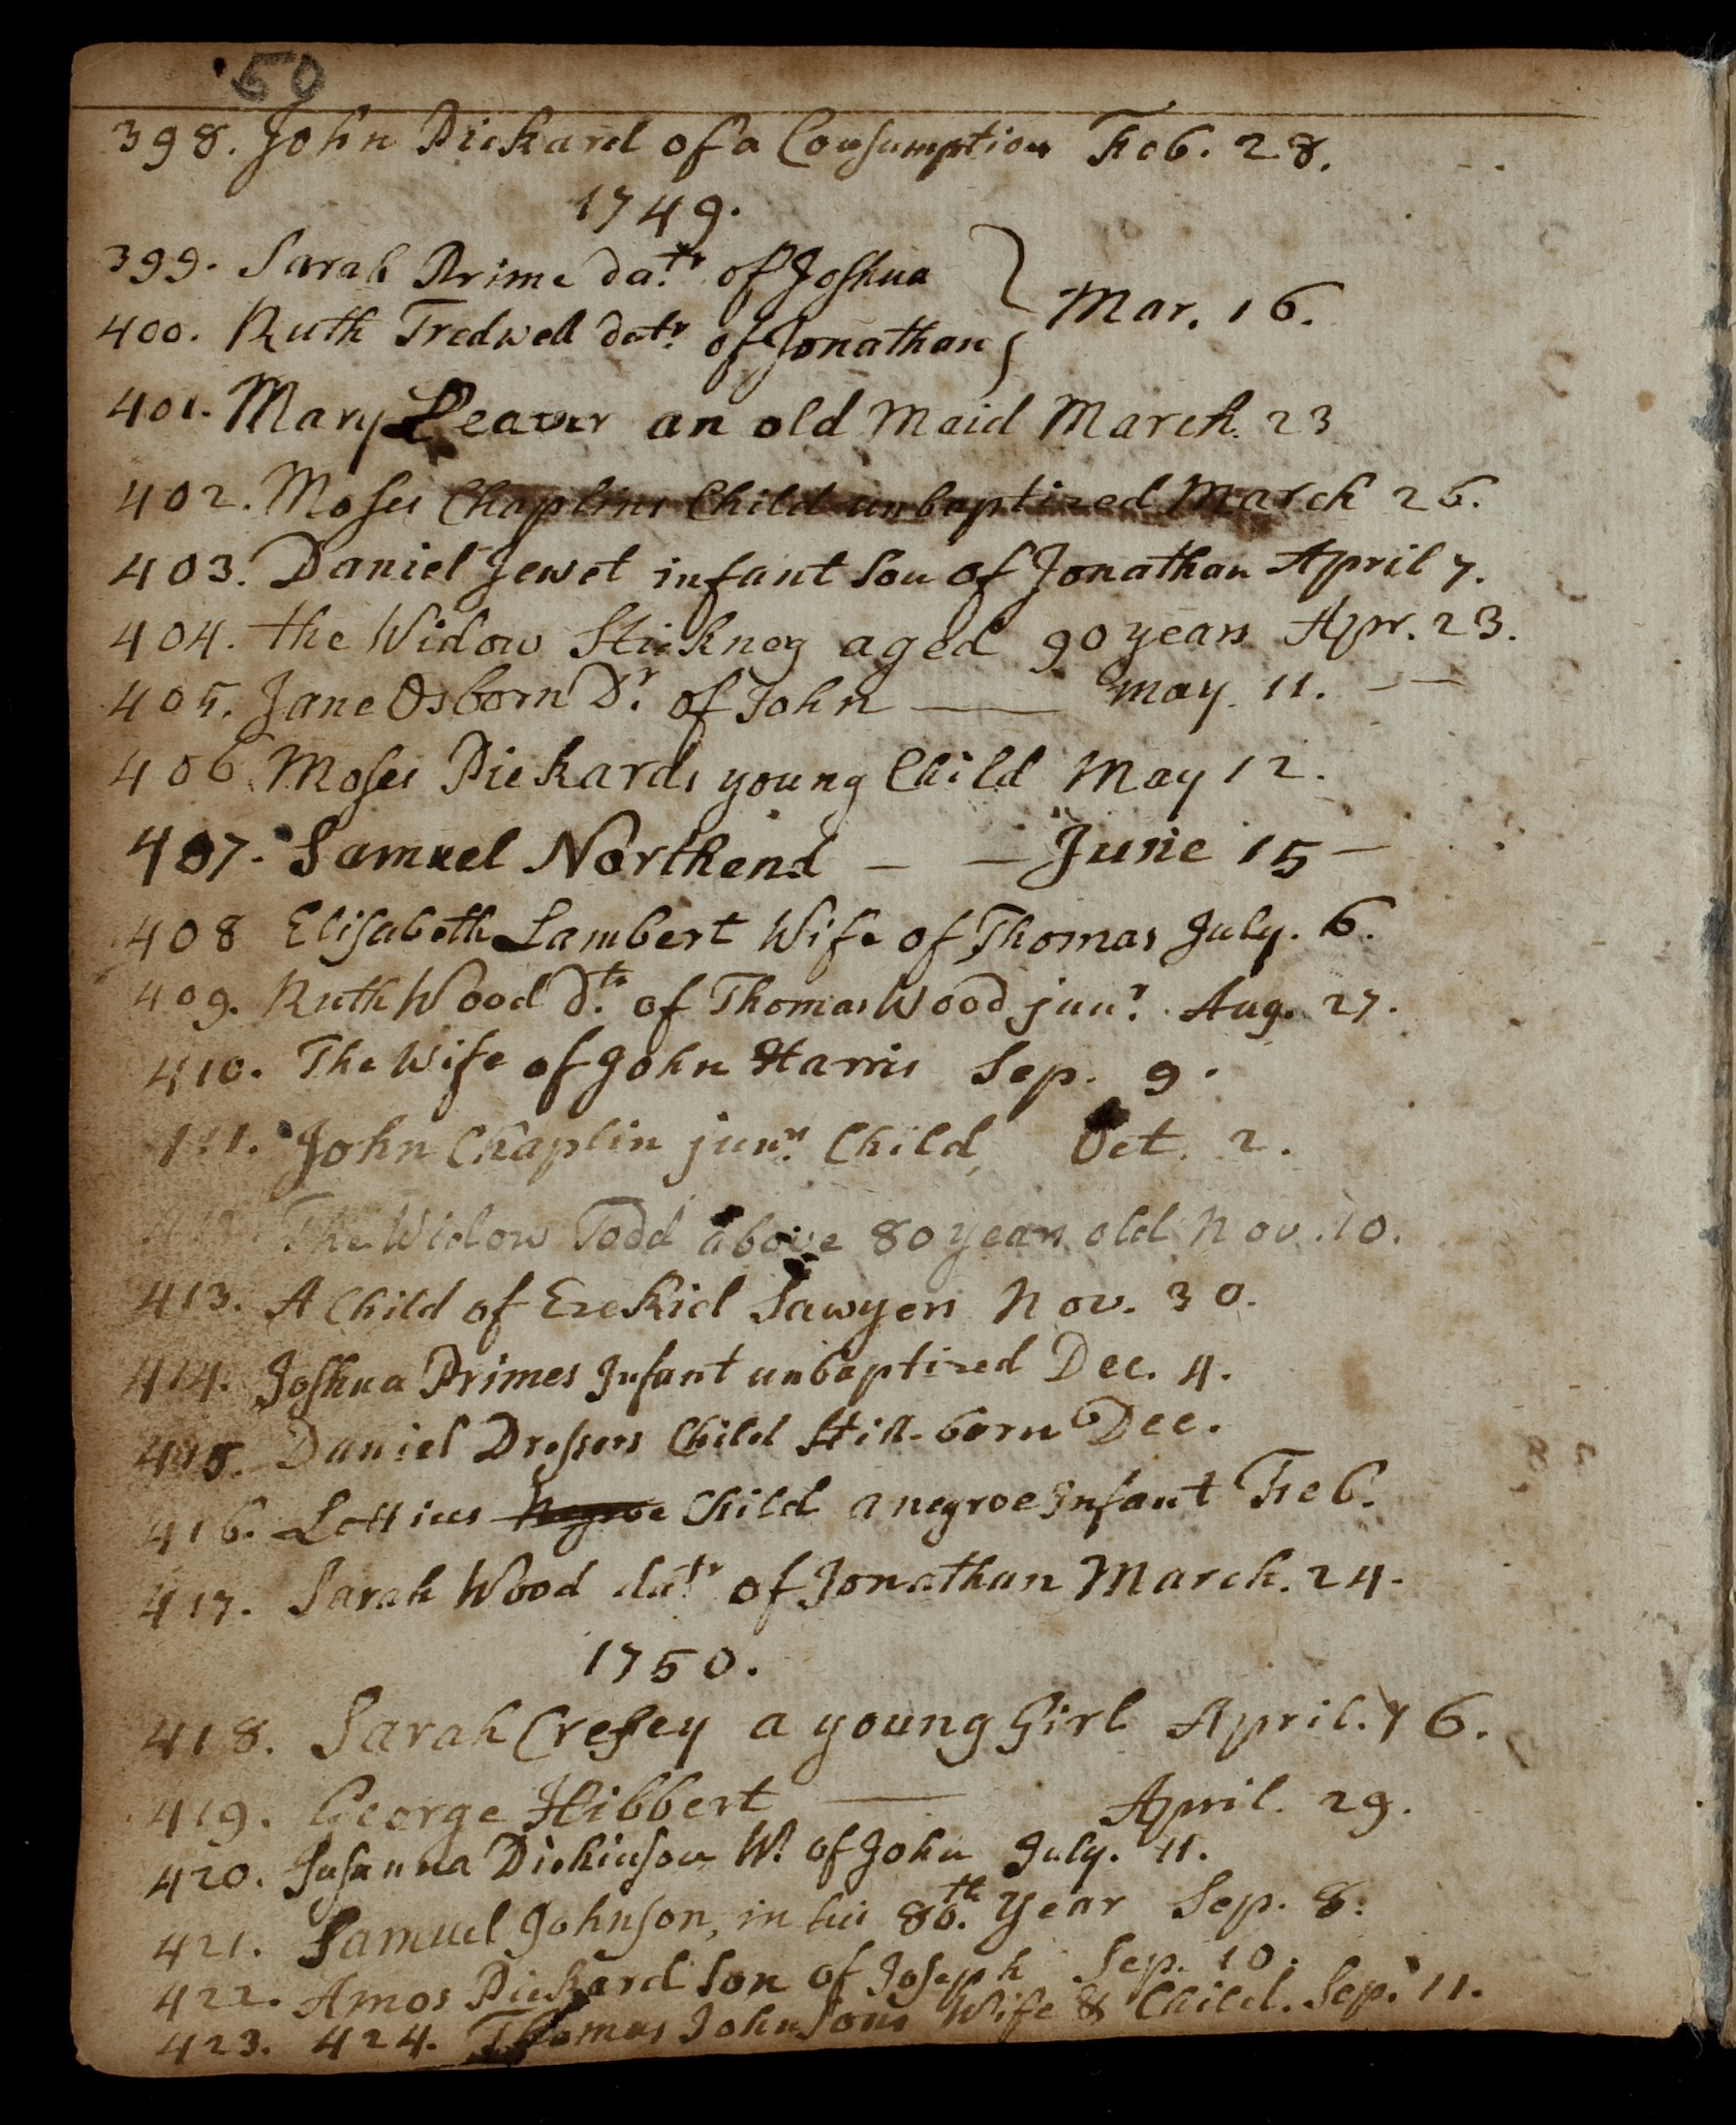 50
398. John Pickard of a Consumption Feb. 28.
1749.
399. Sarah Prime datr. of Joshua
400. Ruth Tredwell datr. of Jonathan } Mar. 16.
401. Mary Leaver an old Maid March. 23
402. Moses Chaplins Child unbaptized March 26.
403. Daniel Jewet infant Son of Jonathan April 7.
404. the Widow Stickney aged 90 years Apr. 23.
405. Jane Osborn Dr. of John —— May. 11. —
406. Moses Pickards young Child May 12.
407. Samuel Northend — — June 15 —
408 Elisabeth Lambert Wife of Thomas July. 6.
409. Ruth Wood Dtr. of Thomas Wood junr. Aug. 27.
410. The Wife of John Harris Sep. 9.
411. John Chaplin junrs. Child, Oct. 2.
The Widow Todd above 80 years old Nov. 10.
413. A Child of Ezekiel Sawyers Nov. 30.
414. Joshua Primes Infant unbaptized Dec. 4.
415. Daniel Dressers Child Still-born Dec.
416. Letties Negroe Child a negroe Infant Feb.
417. Sarah Wood datr. of Jonathan March. 24.
1750.
418. Sarah Cresey a young Girl April. 16.
419. George Hibbert —— April. 29.
420. Susanna Dickinson W. of John July. 11.
421. Samuel Johnson, in his 86.th Year Sep. 8.
422. Amos Pickard Son of Joseph Sep. 10.
423. 424. Thomas Johnsons Wife & Child. Sep. 11.